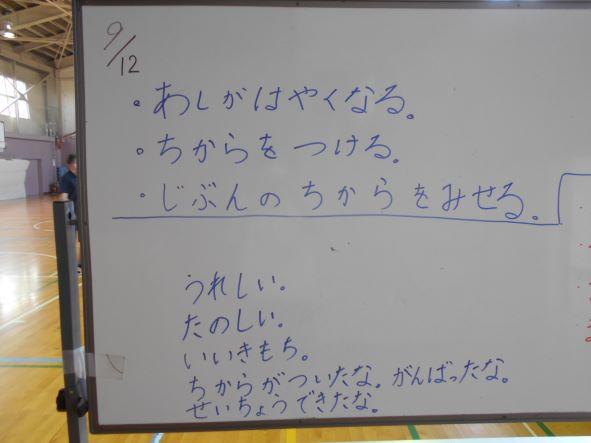 9/12
・あしがはやくなる。
・ちからをつける。
・じぶんのちからをみせる。
うれしい。
たのしい。
いいきもち。
ちからがついたな。がんばったな。
せいちょうできたな。